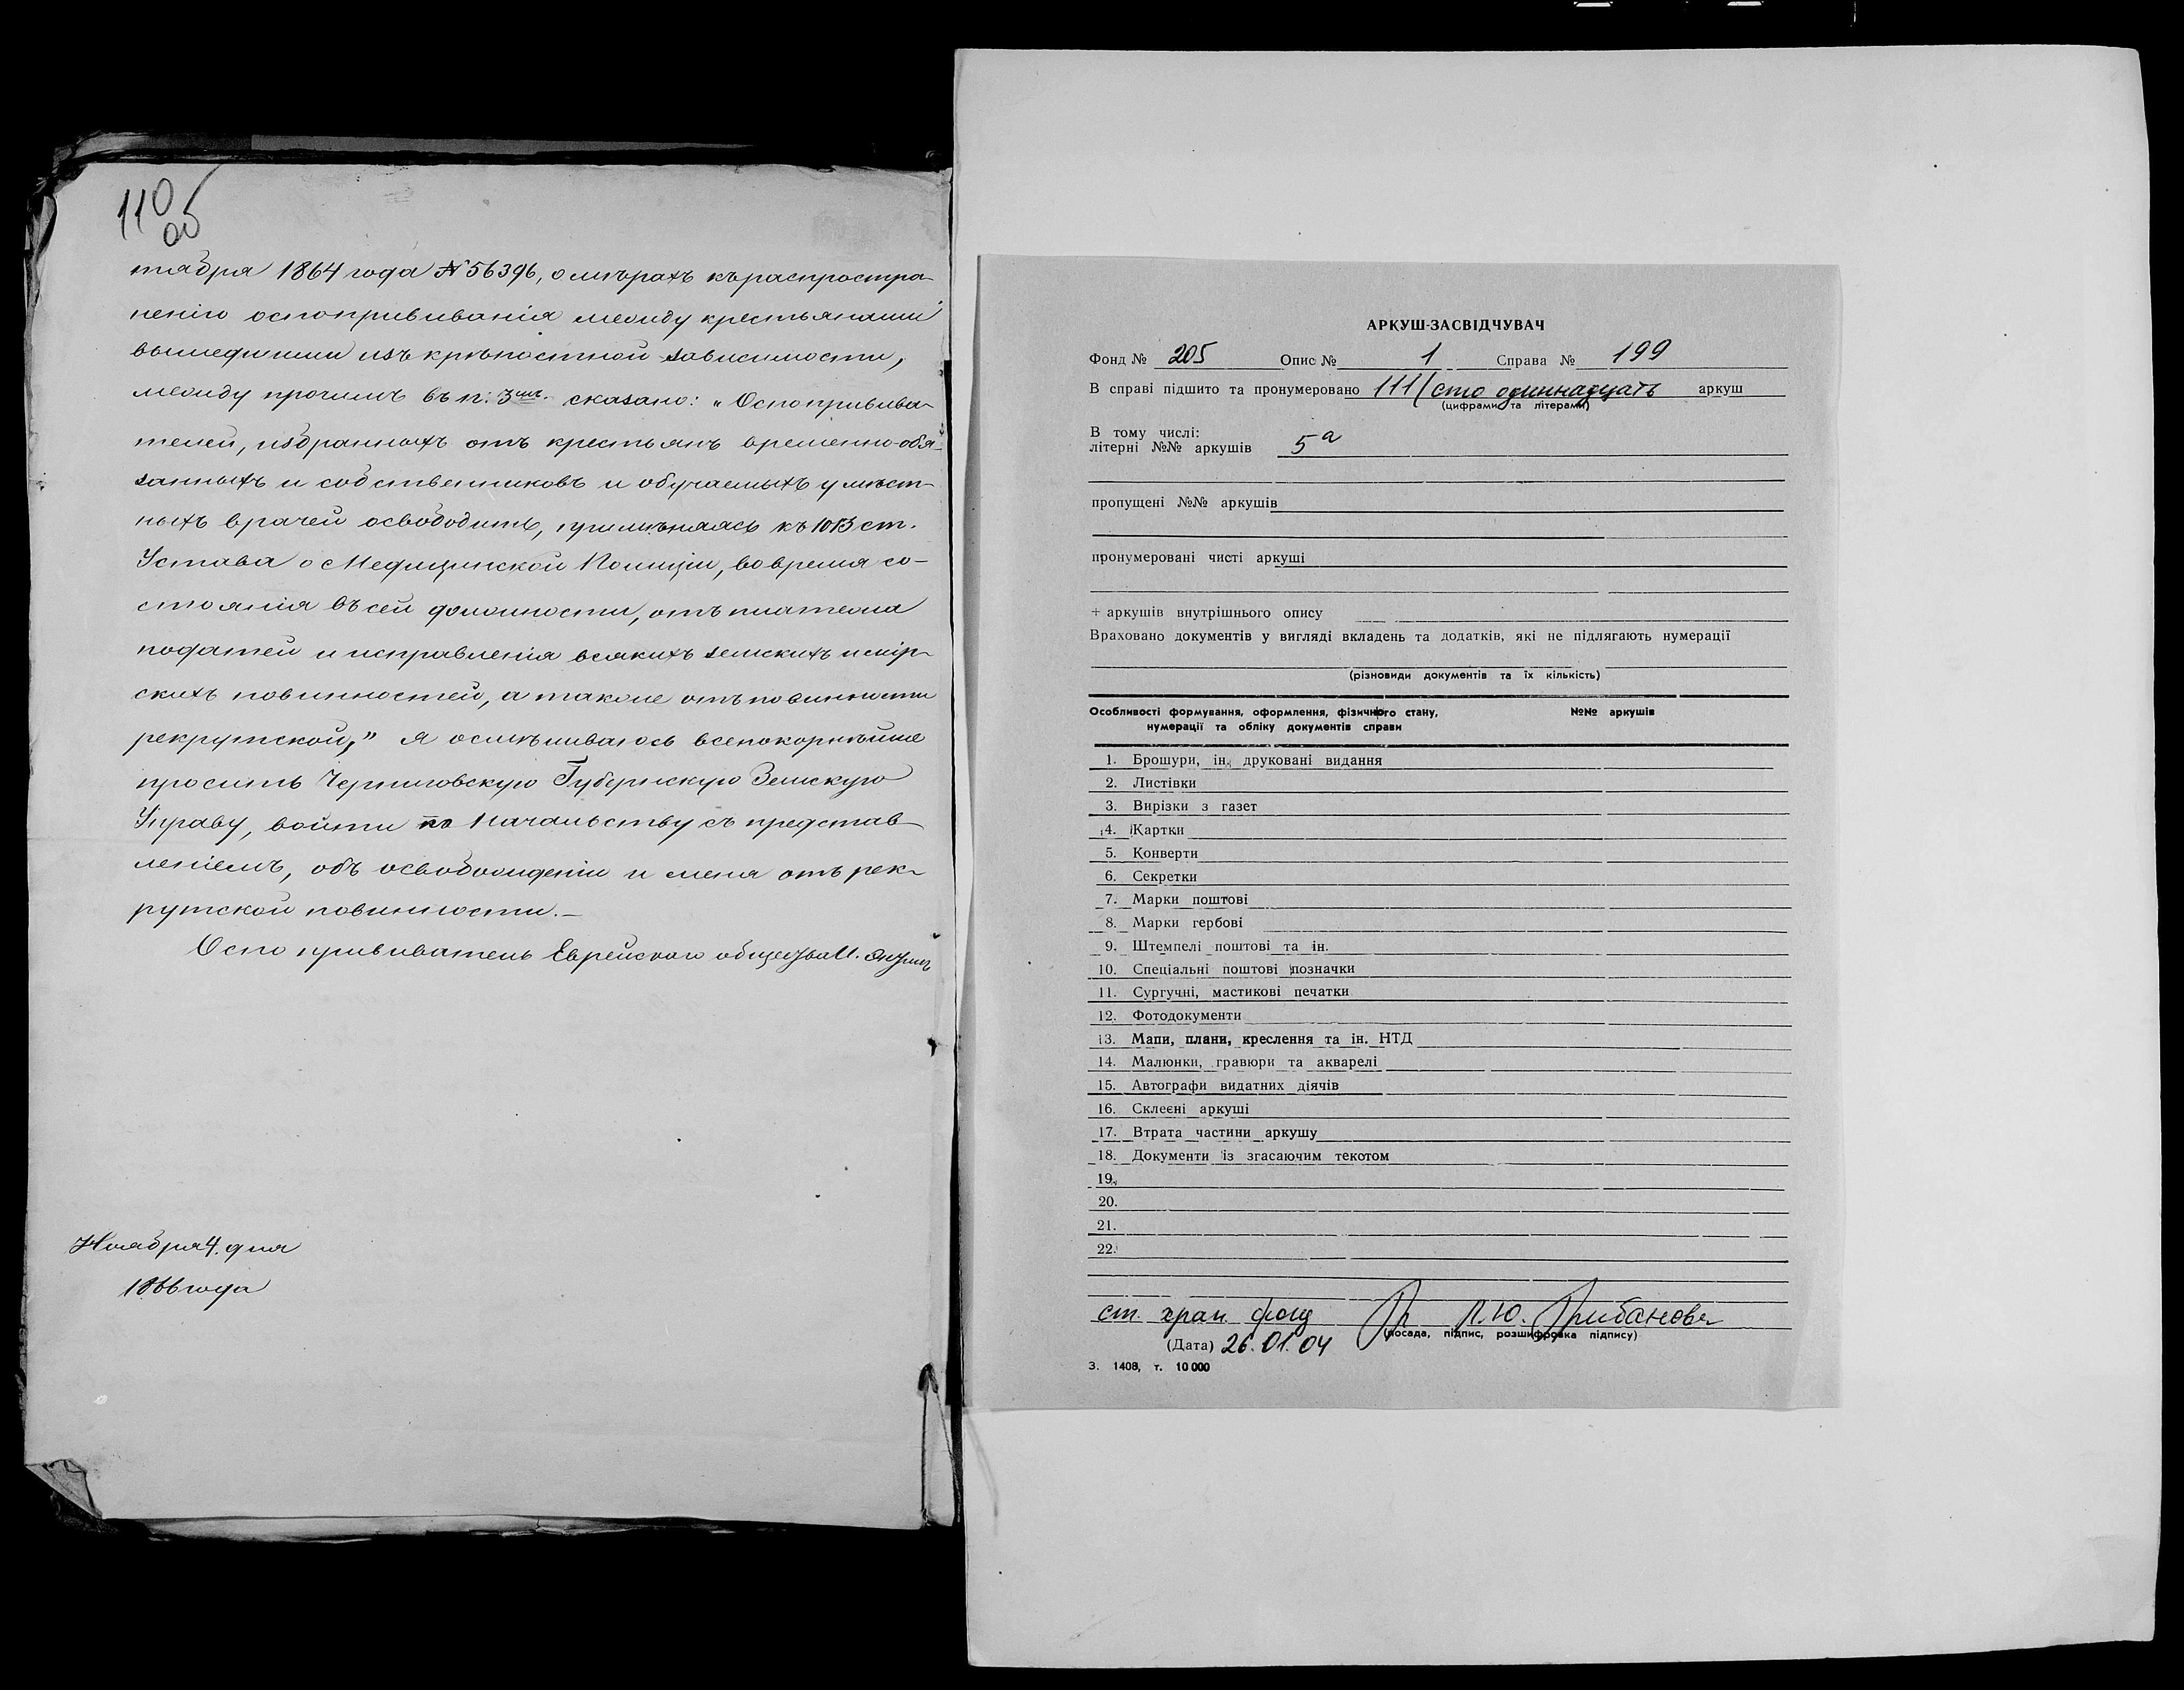 110
об
тября 1864 года № 56396, о мѣрахъ къ распростра-
ненію оспопрививанія между крестьянами
вышедшими изъ крѣпостной зависимости,
между прочимъ въ п: 3мъ. сказано: „Оспопривива-
телей, избранныхъ отъ крестьянъ временно-обя-
занныхъ и собственниковъ и обучаемыхъ у мѣст-
ныхъ врачей освободить, примѣняясь къ 1013 ст.
Устава о Медицинской Полиціи, во время со-
стоянія въ сей должности, отъ платежа
податей и исправленія всякихъ земскихъ и мір-
скихъ повинностей, а также отъ повинности
рекрутской," я осмѣливаюсь всепокорнѣйше
просить Черниговскую Губернскую Земскую
Управу, войти по Начальству съ представ-
леніемъ, объ освобожденіи и меня отъ рек-
рутской повинности.—
Оспопрививатель Еврейского общества
Ноября 4. дня
1866 года
АРКУШ-ЗАСВІДЧУВАЧ
Фонд № 205 Опис № 1 Справа № 199
В справі підшито та пронумеровано 111 (сто одиннадцать аркуш
(цифрами та літерами)
В тому числі:
літерні №№ аркушів 5а
пропущені №№ аркушів
пронумеровані чисті аркуші
+ аркушів внутрішнього опису
Враховано документів у вигляді вкладень та додатків, які не підлягають нумерації
(різновиди документів та їх кількість)
Особливості формування, оформлення, фізичного стану, №№ аркушів
нумерації та обліку документів справи
1. Брошури, ін. друковані видання
2. Листівки
3. Вирізки з газет
4. Картки
5. Конверти
6. Секретки
7. Марки поштові
8. Марки гербові
9. Штемпелі поштові та ін.
10. Спеціальні поштові позначки
11. Сургучні, мастикові печатки
12. Фотодокументи
13. Мапи, плани, креслення та ін. НТД
14. Малюнки, гравюри та акварелі
15. Автографи видатних діячів
16. Склеєні аркуші
17. Втрата частини аркушу
18. Документи із згасаючим текотом
19.
20.
21.
22.
ст. хран фонд Л.Ю. Грибанова
(посада, підпис, розшифровка підпису)
(Дата) 26.01.04
З. 1408, т. 10 000